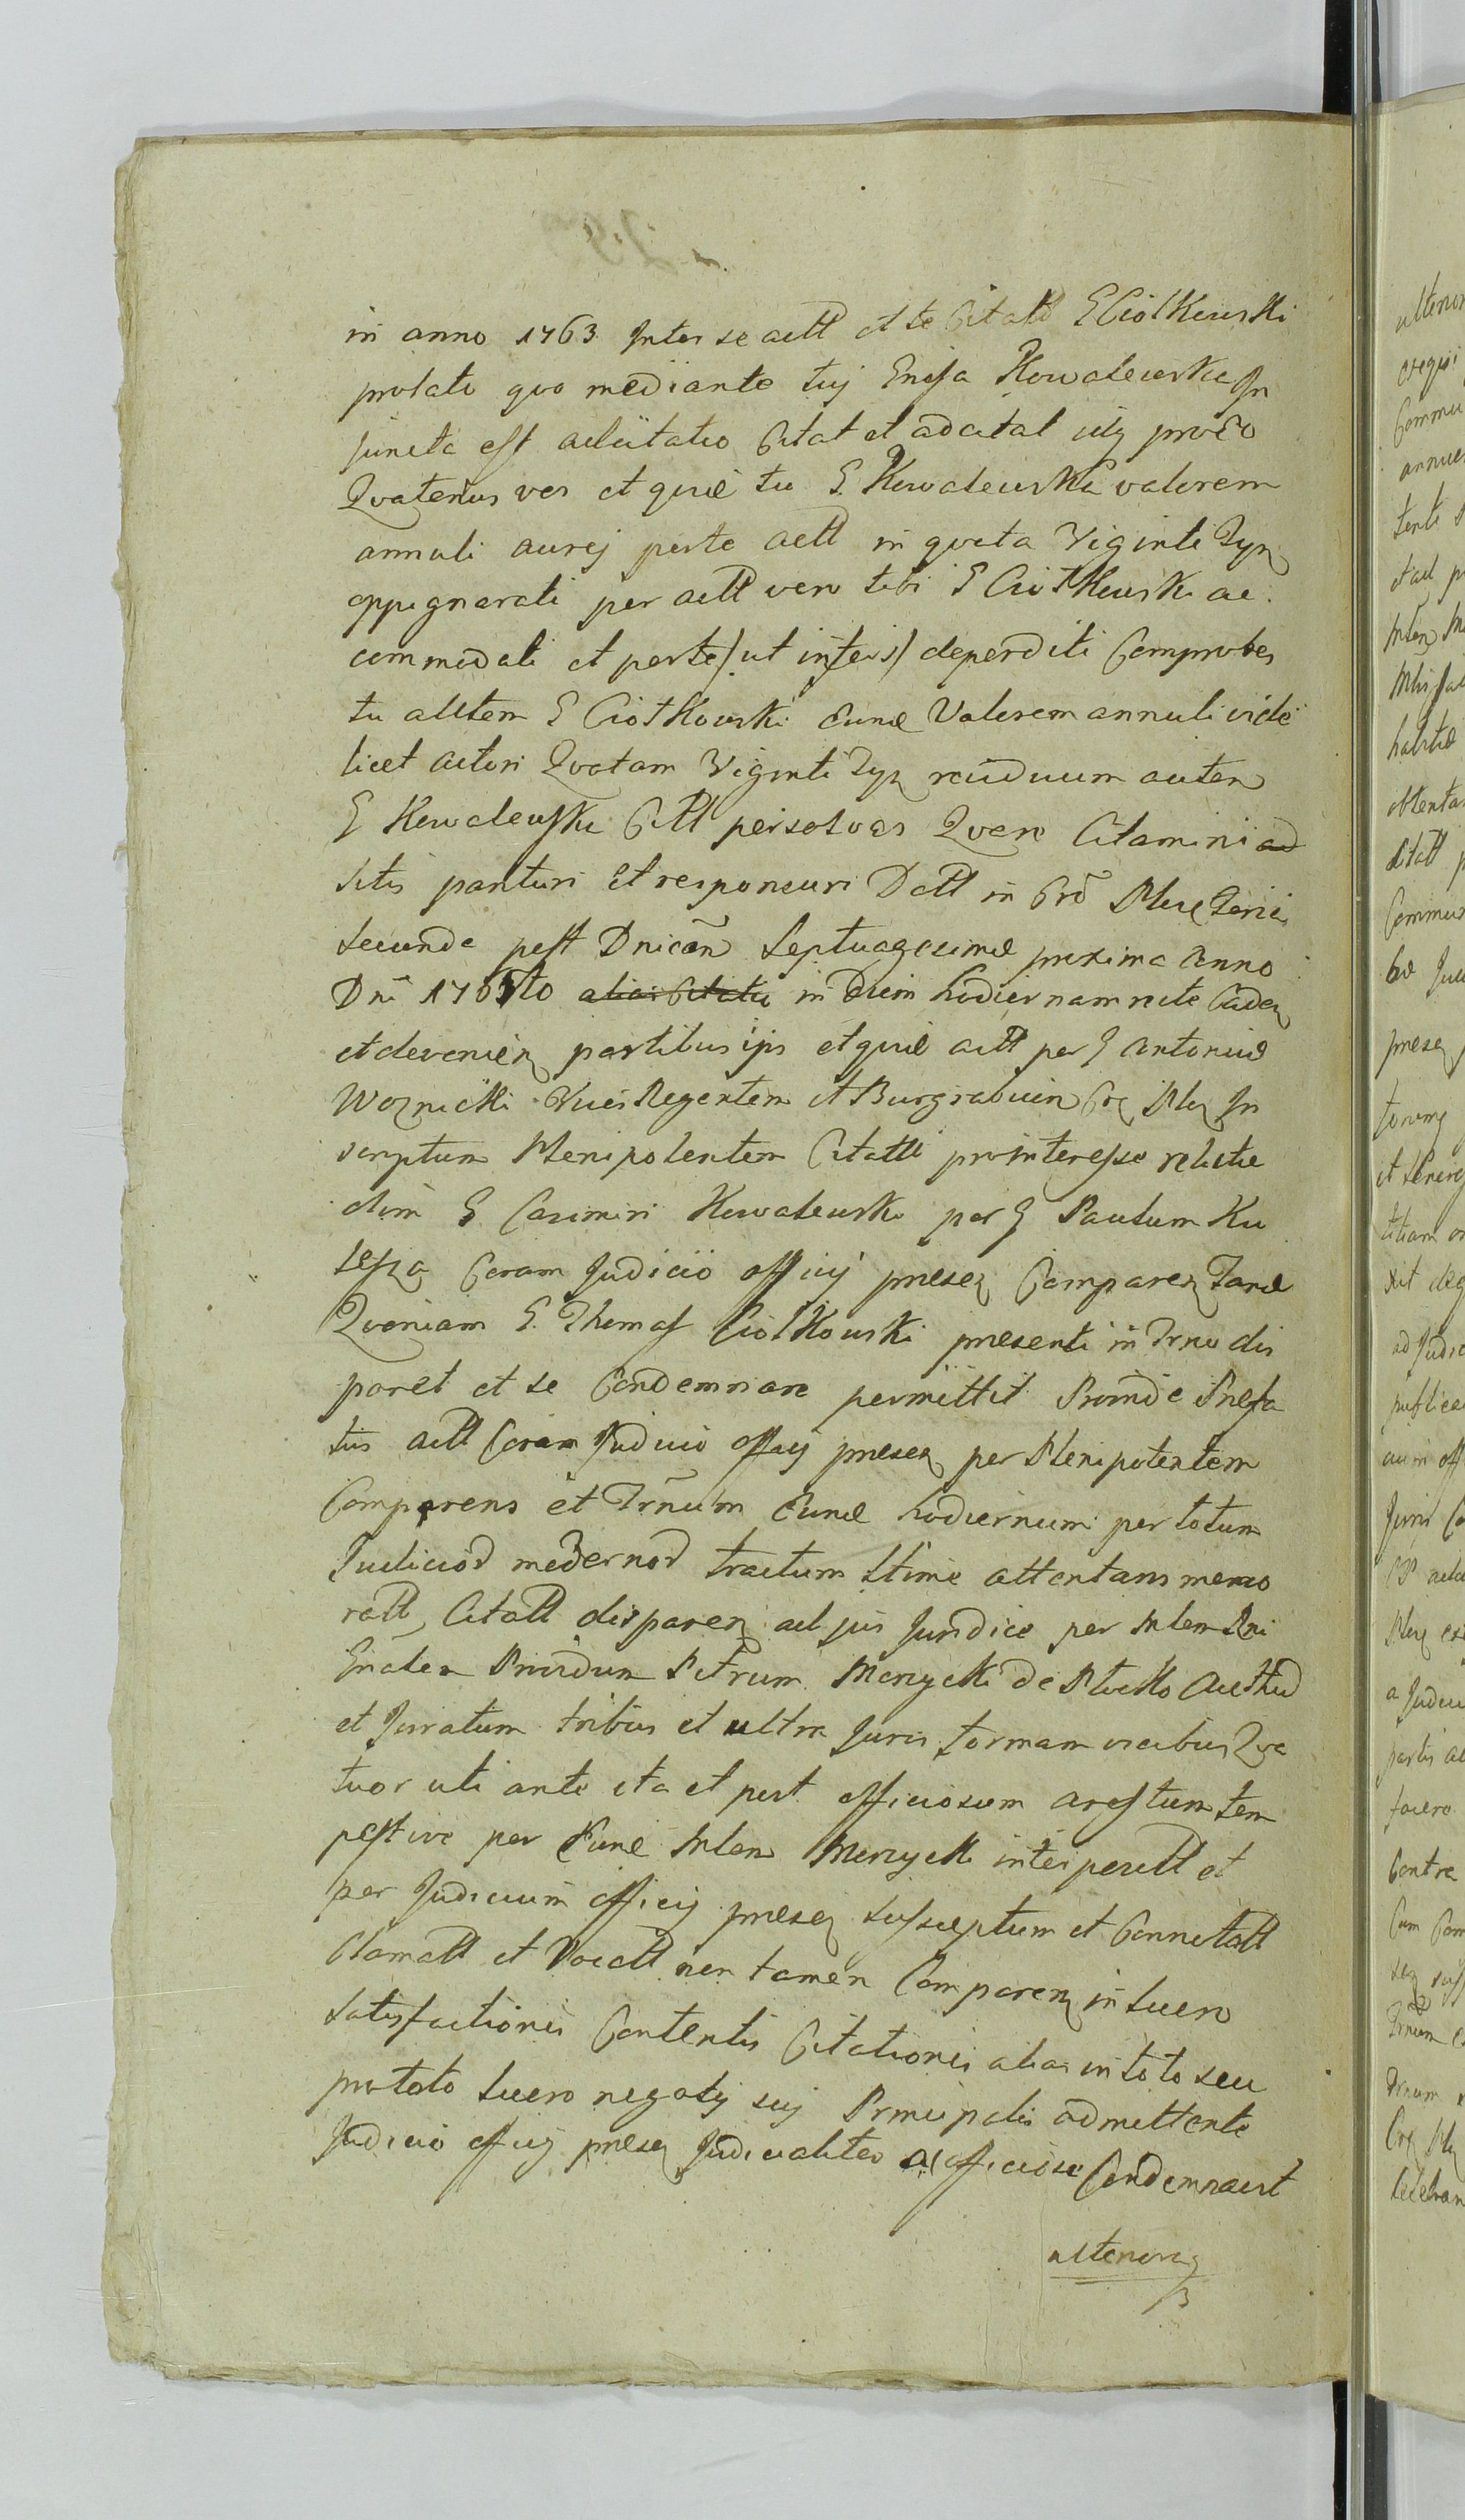 in anno 1763 Inter se actt et te Citatt G Ciołkowski
prolati quo mediante tuj Gnosa Kowalewska In
juncta est adcitatio Citat et adcitat itq proeo
Qvatenus vos et quid tu G. Kowalewska valorem
annuli aurej per te actt in qvota Viginti Tyn
oppignorati per actt vero tibi G Ciołkowski ac
commodati et per te/ut insens/ deperditi Comprobes
tu alltem G Ciołkowski Eund Valorem annuli vide
licet actori Qvotam Viginti Tyn residuum autem
G Kowalewski Citt persolvas Qvare Citamini ad
sitis parituri et responsuri Datt in Crō Ploc Feria
secunda post Dnicam Septuagesimæ proxima Anno
Dni 1765to alias Citatis in diem hodiernam recte Caden
et devenien partibus ijs et quid actt per G Antonium
Woznicki Vices Regentem et Burgrabium Crn Plen In
scriptum Plenipotentem Citatti pro interesse relictæ
olim G. Casimiri Kowalewski per G Paulum Ku
lesza Coram Judicio officij presen Comparen Tand
Qvoniam G. Thomas Ciołkowski presenti in Trno dis
paret et se Condemnare permittit Proinde Prefa
tus actt Coram Judicio officij presen per Plenipotentem
Comparens et Trnum Eund hodiernum per totum
Judiciod modernod tractum ltime attentans memo
ratt, Citatt disparen ad jus Juridice per Mlem Rni
Gnalem Providum Petrum Merycki de Płocko Authud
et Juratum tribus et ultra Juris formam vicibus Qva
tuor uti ante ita et post officiosum arestum tem
pestive per Eund Mlem Merycki interpositt et
per Judicium officij presen susceptum et Connotatt
Clamatt et Vocatt non tamen Comparen in lucro
satisfactionis Contentis Citationis alias in toto seu
pro toto lucro negotij suj Principalis admittente
Judicio officij presen Judicialiter ac officiose Condemnavit
ulteriorq